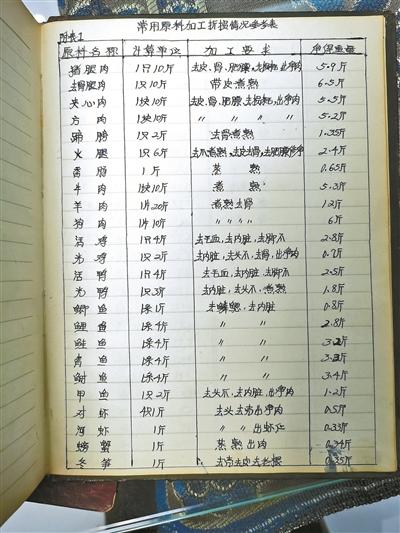 常用原料加工折损情况参考表
附表1
原料名称 计算单位 加工要求 净保重量
猪腿肉 1只10斤 去皮、骨、肥膘、去拐轧、出净肉 5.9斤
去骨腿肉 1只10斤 带皮煮熟 6.5斤
夹心肉 1块10斤 去皮、骨、肥膘、去拐轧、出净肉 5.5斤
方肉 1块10斤 〃 〃 〃 〃 〃 5.2斤
蹄膀 1只2斤 去骨煮熟 1.35斤
火腿 1只6斤 去爪煮熟、去皮去骨、去肥膘 2.4斤
香肠 1斤 蒸熟 0.65斤
牛肉 1块10斤 煮熟 5.3斤
羊肉 1片20斤 煮熟去骨 12斤
狗肉 1片10斤 〃 〃 〃 〃 6斤
活鸡 1只4斤 去毛血、去内脏、去脚爪 2.8斤
光鸡 1只2斤 去内脏、去头爪、去骨、出净肉 0.7斤
活鸭 1只4斤 去毛血、去内脏、去脚爪 2.5斤
光鸭 1只3斤 去内脏、去头爪、煮熟 1.8斤
鲫鱼 1条1斤 去鳞鳃、去内脏 0.8斤
鲤鱼 1条4斤 〃 〃 2.8斤
鲢鱼 1条4斤 〃 〃 3.2斤
青鱼 1条4斤 〃 〃 3.3斤
鲥鱼 1条4斤 〃 〃 3.4斤
甲鱼 1只2斤 去头爪、去内脏、出净肉 1.2斤
对虾 4只1斤 去头去壳出净肉 0.5斤
河虾 1斤 〃 〃 出虾仁 0.33斤
螃蟹 1斤 蒸熟出肉 0.34斤
冬笋 1斤 去壳去皮去老根 0.35斤